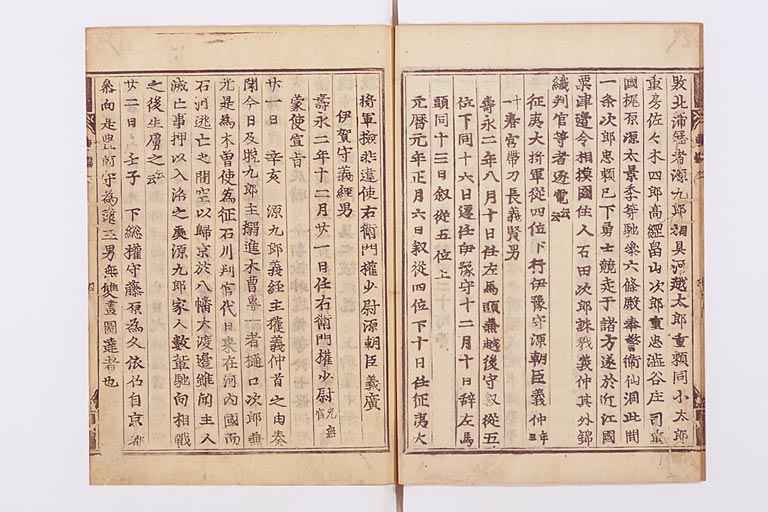 敗北蒲冠者源九郎相具河越太郎重頼同小太郎
重房佐々木四郎高経畠山次郎重忠澁谷庄司重
國梶原源太景季等馳参六條殿奉警衛仙洞此間
一条次郎忠頼已下勇士競走于諸方遂於近江國
粟津邊令相摸國住人石田次郎誅戮義仲其外錦
織判官等者逐電云云
征夷大将軍従四位下行伊豫守源朝臣義仲年三
十一春宮帯刀長義賢男
壽永二年八月十日任左馬頭兼越後守叙従五
位下同十六日遷任伊豫守十二月十日辞左馬
頭同十三日叙従五位上
元暦元年正月六日叙従四位下十日任征夷大
将軍検非違使右衛門權少尉源朝臣義廣
伊賀守義經男
壽永二年十二月廿一日任右衛門權少尉元無官
蒙使宣旨
廿一日 辛亥 源九郎義経主獲義仲首之由奏
聞今日及晩九郎主搦進木曽專一者樋口次郎兼
光是爲木曽使爲征石川判官代日来在河内國而
石河逃亡之間空以歸京於八幡大渡邊雖聞主人
滅亡事押以入洛之處源九郎家人數輩馳向相戦
之後生虜之云云
廿二日 壬子 下総權守藤原爲久依召自京都
参向是豊前守爲遠三男無雙畫圖達者也